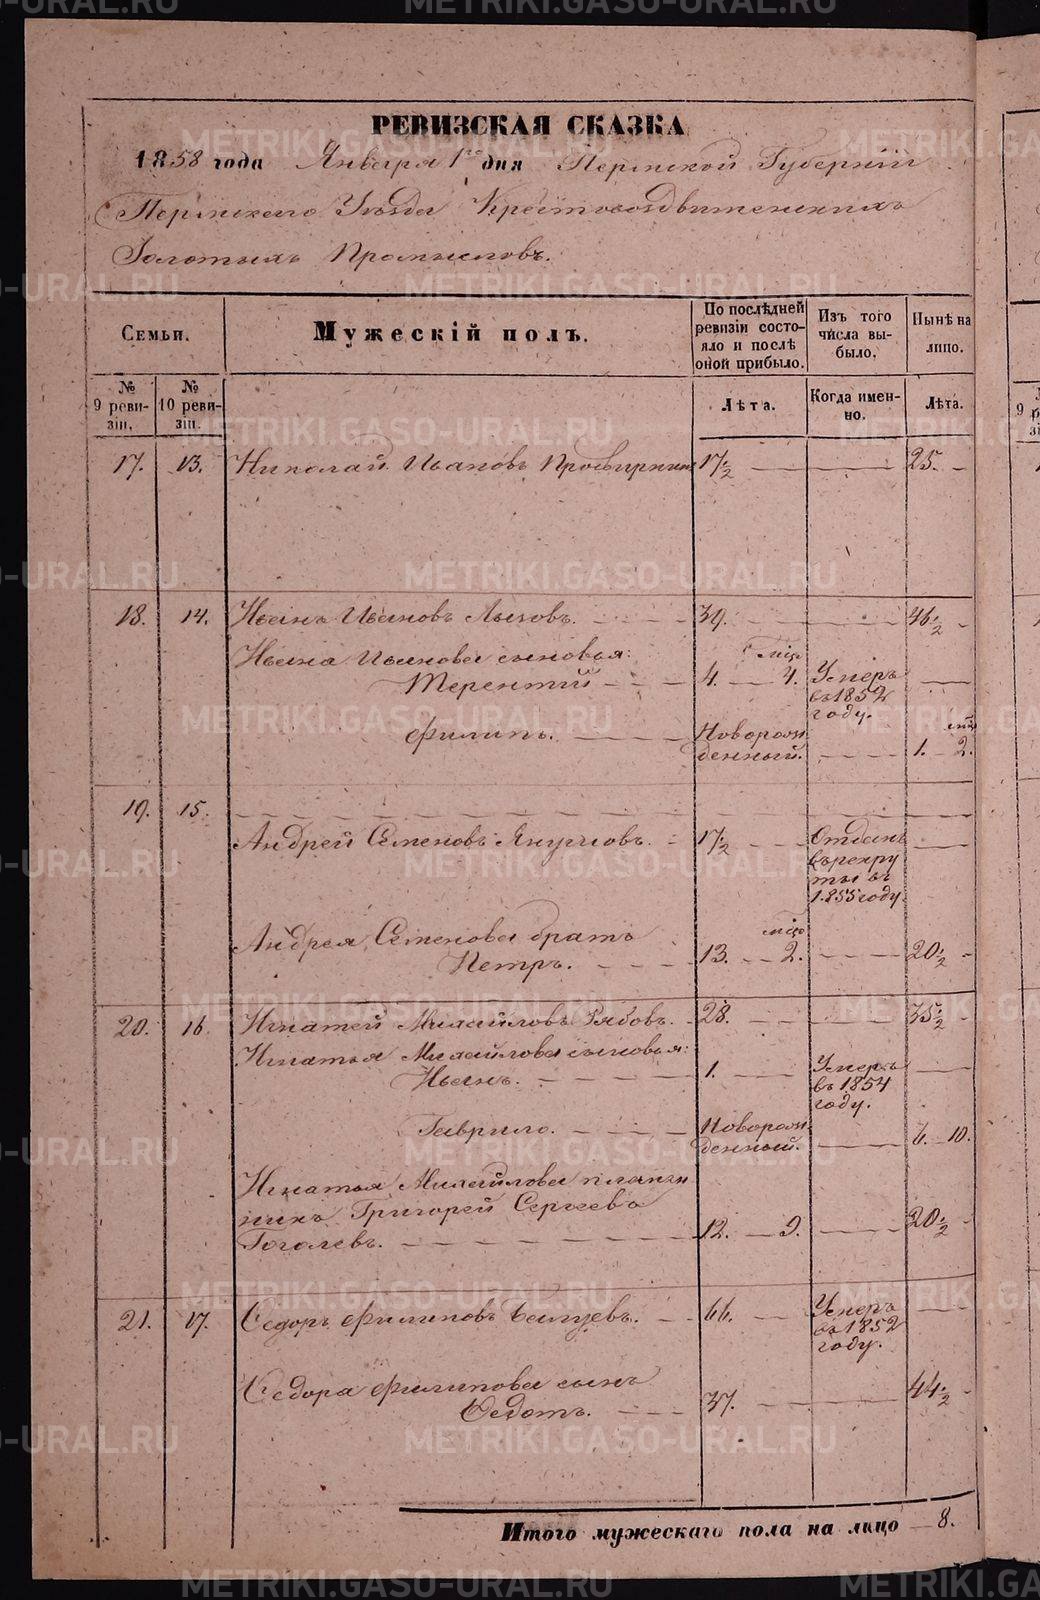 РЕВИЗСКАЯ СКАЗКА
1858 года Января 1го дня Пермской Губернiи
Пермскаго Уѣзда Крестовоздвиженскихъ
Золотыхъ Промысловъ.
Семьи.
Мужескiй полъ.
По послѣдней ревизiи состояло и послѣ оной прибыло.
Изъ того числа выбыло.
Нынѣ на лицо.
№ 9 ревизiи.
№ 10 ревизiи.
Лѣта.
Когда именно.
Лѣта.
17. 13. Николай Ивановъ 17 1/2 25.
18. 14. Иванъ Ивановъ Лызовъ. 39. 46 1/2
Ивана Иванова сыновья:
Терентiй 4. 4. мѣс. Умеръ въ 1852 году.
Филипъ. Новорожденный. 1. 2. мѣс
19. 15.
Андрей Семеновъ 17 1/2 Отданъ въ рекруты въ 1855 году.
Андрея Семенова братъ
Петръ. 13. 2. мѣс 20 1/2
20. 16. Игнатей Михайловъ Рябовъ. 28. 35 1/2
Игнатья Михайлова сыновья:
Иванъ. 1. Умеръ въ 1854 году.
Гаврило. Новорожденный. 6. 10.
Игнатья Михайлова племян
никъ Григорей Сергеевъ
Гоголевъ. 12. 9. 20 1/2
21. 17. Ѳедоръ Филиповъ 66. Умеръ въ 1852 году.
Ѳедора Филипова сынъ
Ѳедотъ. 37. 44 1/2
Итого мужескаго пола на лицо 8.
METRIKI.GASO-URAL.RU